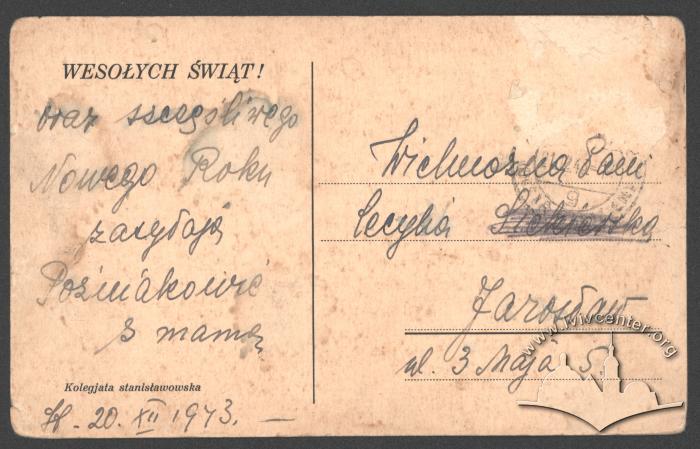 WESOŁYCH ŚWIĄT!
oraz szczęśliwego
Nowego Roku
zasyłają
z mamą
Kolegjata stanisławowska
20. XII 1943. —
Wielmożna Pani
Cecylia
Jarosław
ul. 3 Maja 5.
www.lvivcenter.org